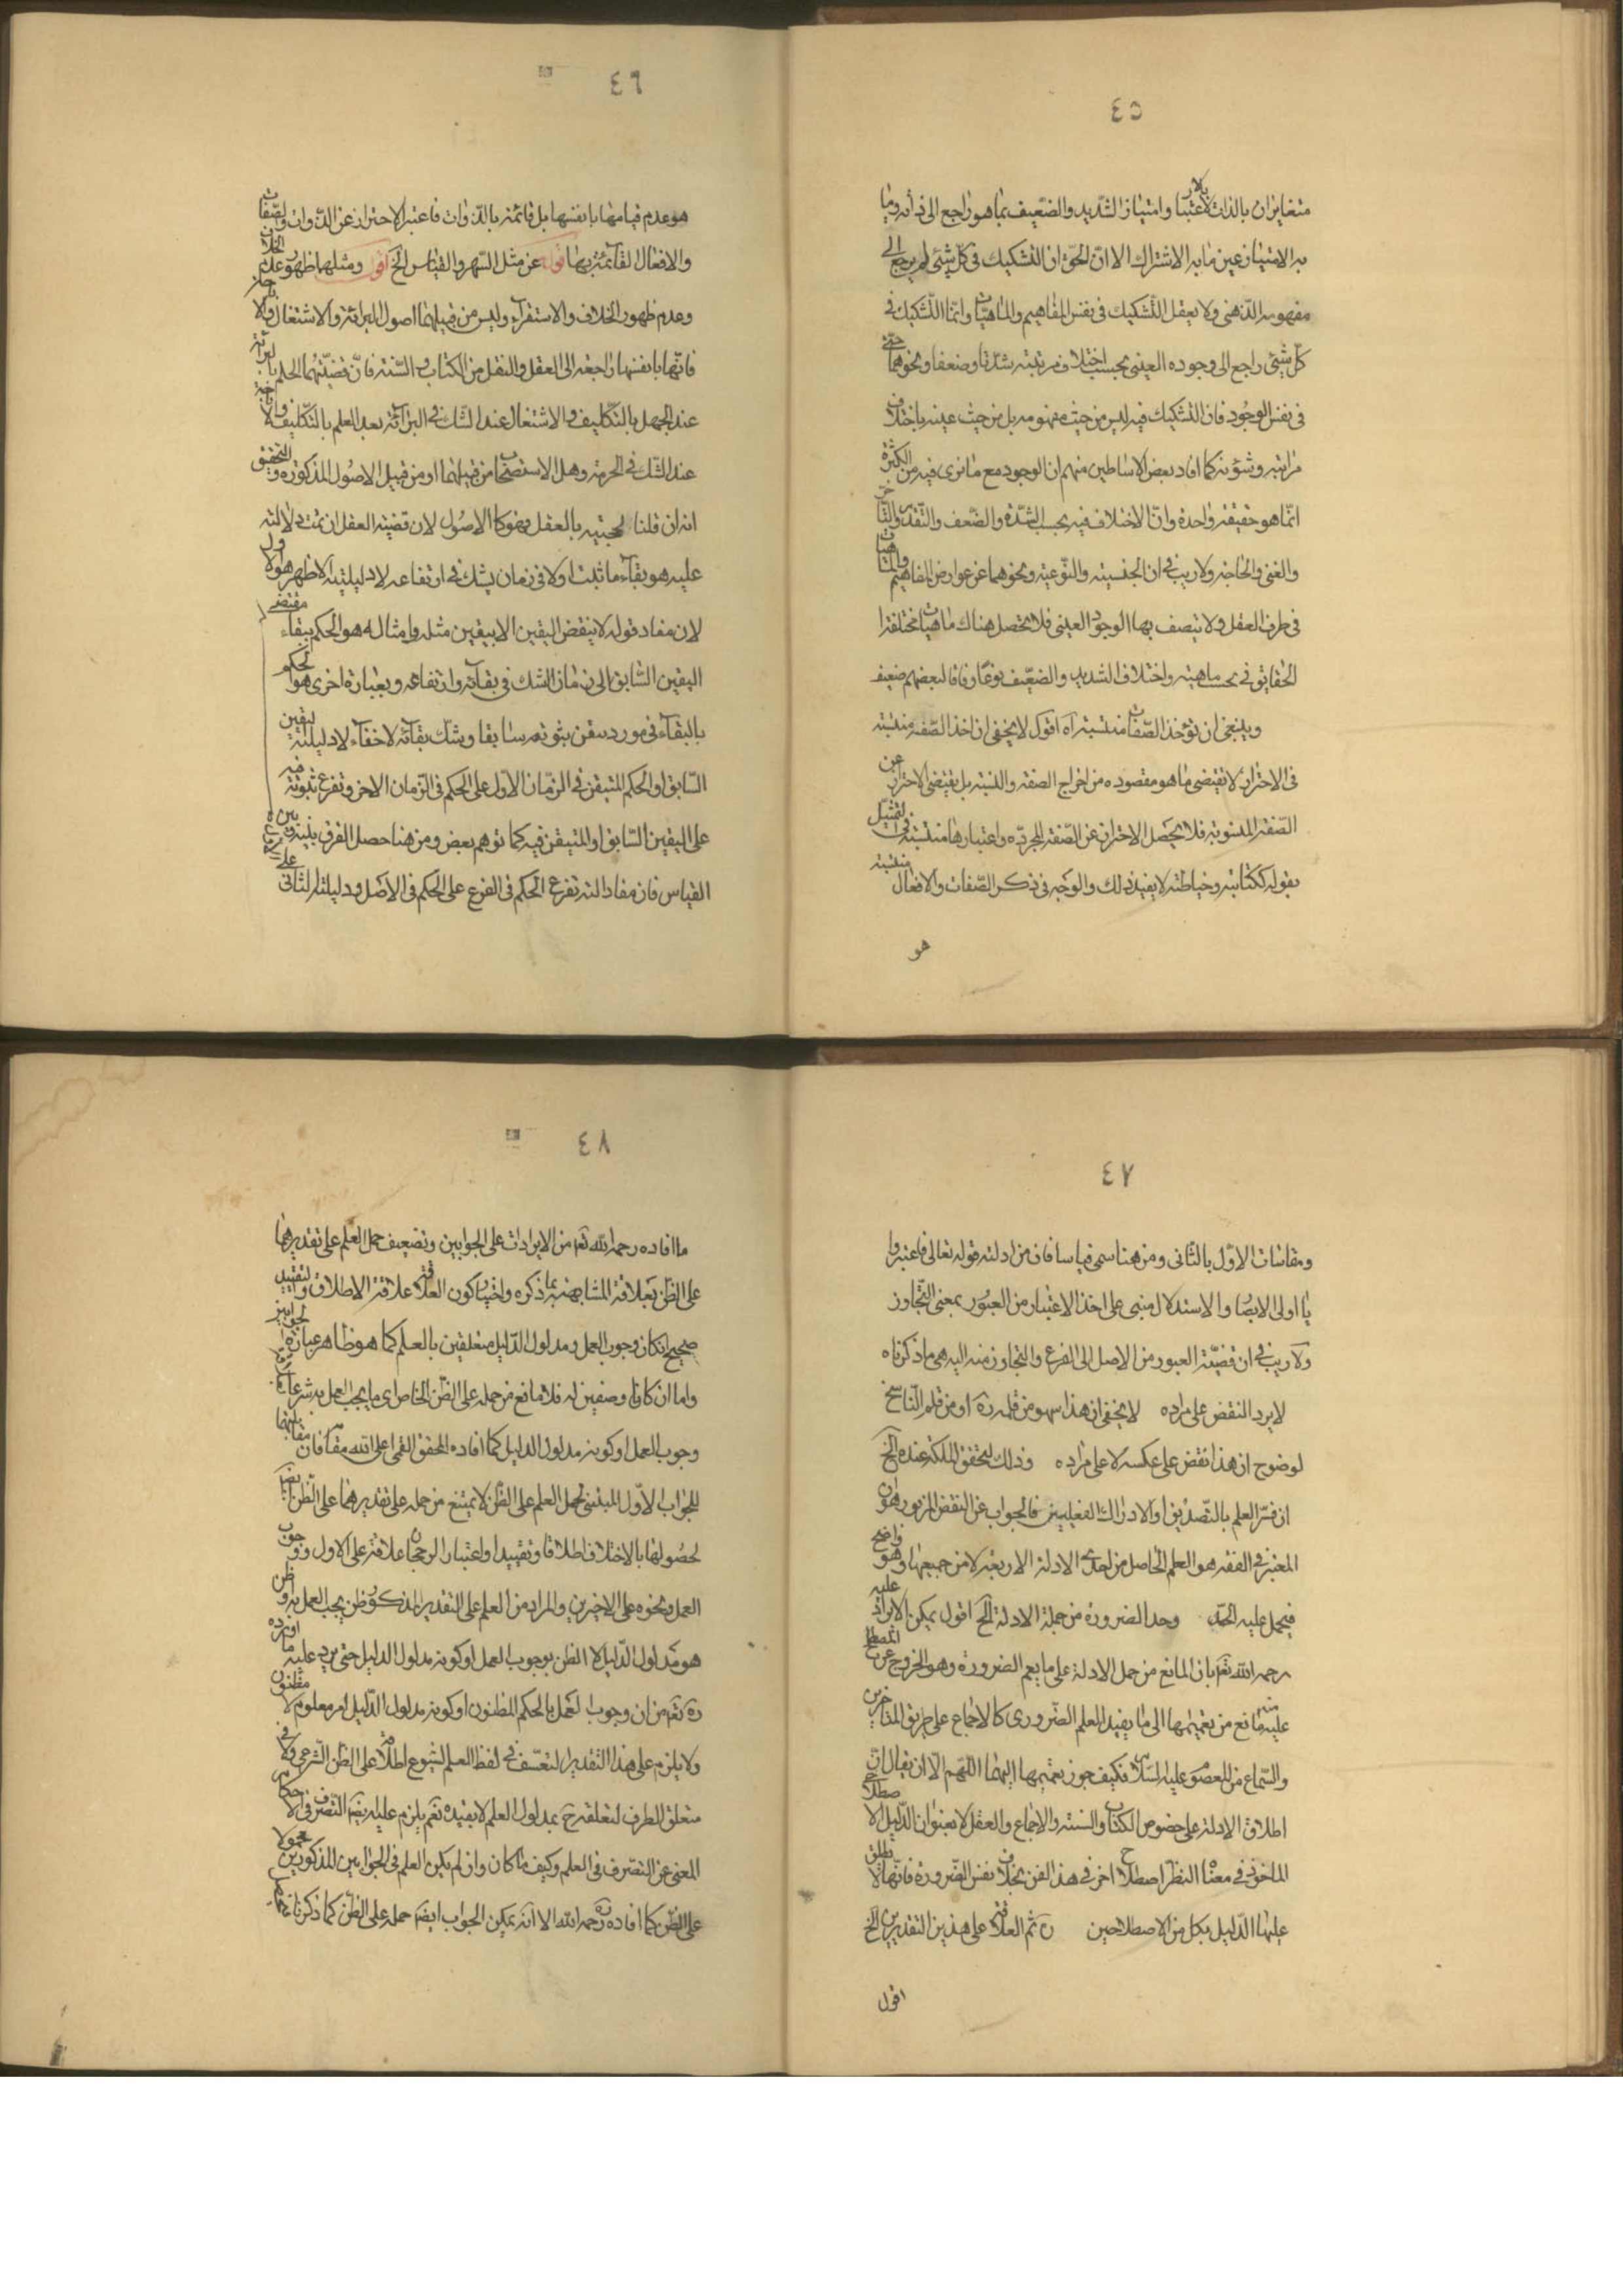 ٤٥
متغايران بالذات بالاعتبار وامتياز الشديد والضعيف بما هو راجع الى ذاته وما
به الامتياز عين ما به الاشتراك الا ان الحق ان التشكيك فى كل شئى لم يرجع الى
مفهومه الذهنى ولا يعقل التشكيك فى نفس المفاهيم والماهيات وانما التشكيك فى
كل شيئ راجع الى وجوده العينى بحسب اختلاف مرتبته شدتا وضعفا ونحوهما حتى
فى نفس الوجود فان التشكيك فيه ليس من حيث مفهومه بل من حيث عينه باختلاف
مراتبه وشؤنه كما افاد بعض الاساطين منهم ان الوجود مع ما نرى فيه من الكثرة
انما هو حقيقة واحدة وانما الاختلاف فيه بحسب الشدة والضعف والتقدم والتأخر
والغنى والحاجة ولا ريب فى ان الجنسية والنوعية ونحوهما من عوارض المفاهيم والماهيات
فى ظرف العقل ولا يتصف بها الوجود العينى فلا تحصل هناك ماهيات مختلفة
الحقايق فى بحسب ماهية واختلاف الشديد والضعيف نوعا وفاقا لبعضهم ضعيف
وينبغى ان تؤخذ الصفات منتسبة اه اقول لا يخفى ان اخذ الصفة منتسبة
فى الاحتراز لا تقتضى ما هو مقصوده من اخراج الصفة والنسبة بل يقتضى الاحتراز عن
الصفة المنسوبة فلا يحصل الاحتراز عن الصفة المجرده واعتبارها منتسبة فى التمثيل
بقوله ككتابته وخياطته لا يفيد ذلك والوجه فى ذكر الصفات والافعال منتسبة
هو
٤٦
هو عدم قيامها بانفسها بل قائمة بالذوات فاعتبر الاحتراز عن الذوات والصفات
والافعال القائمة بها قوله عن مثل الشهرة والقياس الخ اقول ومثلهما ظهور عدم الخلاف
وعدم ظهور الخلاف والاستقراء وليس من قبيلهما اصول البرائة والاشتغال والاباحة
فانها بانفسها راجعة الى العقل والنقل من الكتاب والسنة فان قضيتهما الحكم بالبرائة
عند الجهل بالتكليف والاشتغال عند الشك فى البرائة بعد العلم بالتكليف والاباحة
عند الشك فى الحرمة وهل الاستصحاب من قبيلهما او من قبيل الاصول المذكوره والتحقيق
انه ان قلنا لحجتيه بالعقل فهو كالاصول لان قضية العقل ان تمت دلالته
عليه هو بقاء ما ثبت اولا فى زمان يشك فى ارتفاعه لا دليليته الاظهر هو الاول
لان مفاد قوله لا ينقض اليقين الا بيقين مثله وامثاله هو الحكم ببقاء مقتضى
اليقين السابق الى زمان الشك فى بقائه وارتفاعه وبعبارة اخرى هو الحكم
بالبقاء فى مورد تيقن بثوته سابقا وشك بقائه لا خفاء لا دليلية اليقين
السابق او الحكم المتيقن فى الزمان الاول على الحكم فى الزمان الاخر وتفرع ثبوته فيه
على اليقين السابق او المتيقن فيه كما توهم بعض ومن هنا حصل الفرق بينه وبين
القياس فان مفاد الته تفرع الحكم فى الفرع على الحكم فى الاصل ودليلية الثانى على
٤٧
ومقاسات الاول بالثانى ومن هنا سمى قياسا فان من ادلته قوله تعالى فاعتبروا
يا اولى الابصار والاستدلال مبنى على اخذ الاعتبار من العبور بمعنى التجاوز
ولا ريب فى ان قضية العبور من الاصل الى الفرع والتجاوز منه اليه هى ما ذكرناه
لا يرد النقض على مراده لا يخفى ان هذا سهو من قلمه ره او من قلم الناسخ
لوضوح ان هذا نقض على عكسه لا على مراده وذلك لتحقق الملكة عنده الخ
ان فسر العلم بالتصديق او الادراك الفعليين فالجواب عن النقض المزبور هو ان
المعتبر فى الفقه هو العلم الحاصل من احدى الادلة الاربعة لا من جميعها وهو واضح
فيحمل عليه الحد وحد الضرورة من جملة الادلة الخ اقول يمكن الايراد عليه
رحمه الله تعم بان المانع من حمل الادلة على ما يعم الضرورة وهو الخروج عن المصطلح
عليه مانع من تعميمها الى ما يفيد العلم الضرورى كالاجماع على طريق المتاخرين
والسماع من المعصوم عليه السلام فكيف جوز تعميمها اليهما اللهم الا ان يقال ان
اطلاق الادلة على خصوص الكتاب والسنة والاجماع والعقل لا بعنوان الدليل الاصطلاحى
الماخوذ فى معناه النظر اصطلاح اخر فى هذا الفن بخلاف نفس الضرورة فانها لا يطلق
عليها الدليل بكل من الاصطلاحين ثم العلاقة على هذين التقديرين الخ
اقول
٤٨
ما افاده رحمه الله تعم من الايرادات على الجوابين وتضعيف حمل العلم على تقديرهما
على الظن بعلاقة المشابهة بما ذكره واختيار كون العلاقة علاقة الاطلاق والتقييد
صحيح ان كان وجوب العمل ومدلول الدليل متعلقين بالعلم كما هو ظاهر عبارة الجوابين
واما ان كانا وصفين له فلا مانع من حمله على الظن الخاص اى ما يجب العمل به شرعا
وجوب العمل او كونه مدلول الدليل كما افاده المحقق القمى اعلى الله مقامه فان مقابلتهما
للجواب الاول المبتنى لحمل العلم على الظن لا يمتنع من حمله على تقديرهما على الظن ايضا
لحصولها بالاختلاف اطلاقا وتقييدا واعتبار الرجحان علاقة على الاول ووجوب
العمل ونحوه على الاخيرين والمراد من العلم على التقدير المذكور ظن يجب العمل به او ظن
هو مدلول الدليل لا الظن بوجوب العمل او كونه مدلول الدليل حتى يرد عليه ما اورده
ره تعم من ان وجوب العمل بالحكم المظنون او كونه مدلول الدليل امر معلوم لا مظنون
ولا يلزم على هذا التقدير التعسف فى لفظ العلم لشيوع اطلاقه على الظن الشرعى ولا فى
متعلق الظرف لتعلقه ح بمدلول العلم لا بقيده نعم يلزم عليه ايضا التصرف فى الاحكام
المعنى عن التصرف فى العلم وكيف ما كان وان لم يكن العلم فى الجوابين المذكورين محمولا
على الظن كما افاده رحمه الله الا انه يمكن الجواب ايضا حمله على الظن كما ذكرنا